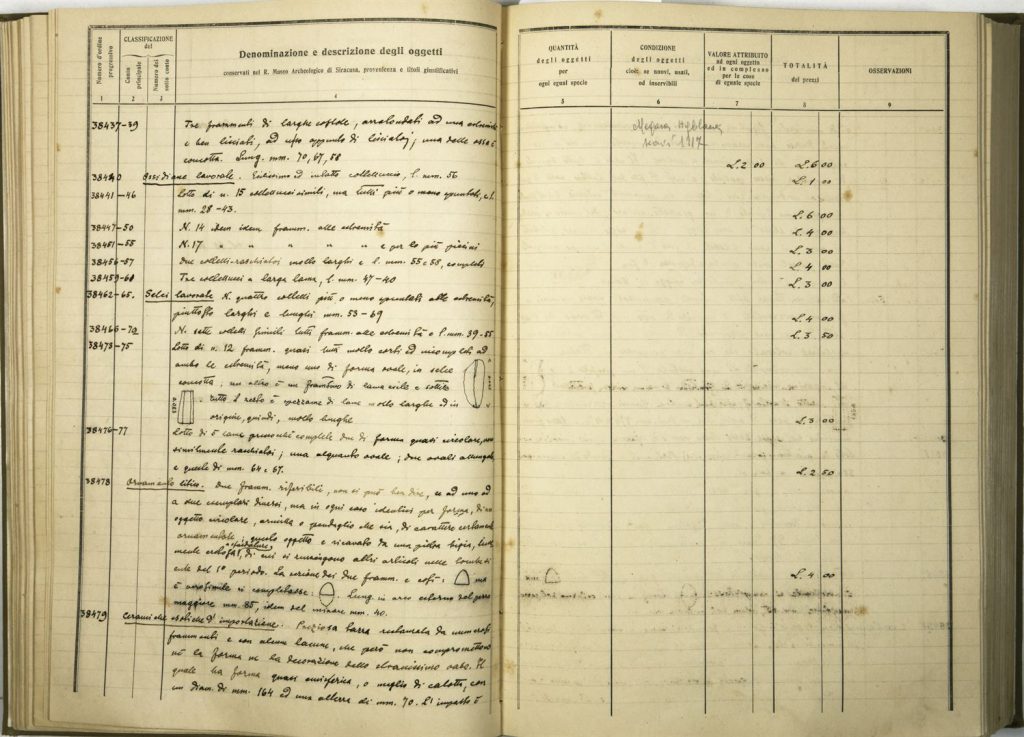 Numero d'ordine progressivo
CLASSIFICAZIONE del
Conto principale
Numero del sotto conto
Denominazione e descrizione degli oggetti
conservati nel R. Museo Archeologico di Siracusa, provenienza e titoli giustificativi
1 2 3 4
38437-39 Tre frammenti di larghe costole, arrotondati ad una estremità
e ben lisciati, ad uso appunto di lisciatoi; una delle ossa è
concotta. Lung. mm. 70, 67, 58
38440 Ossidiane lavorate. Esilissimo ed intatto coltelluccio, l. mm. 56
38441-46 Lotto di n. 15 coltellucci simili, ma tutti più o meno spuntati, l.
mm. 28-43.
38447-50 N. 14 idem idem framm. alle estremità
38451-55 N. 17 " " " " " e per lo più piccini
38456-57 Due coltelli-raschiatoi molto larghi e l. mm. 55 e 58, completi
38459-60 Tre coltellucci a larga lama, l. mm. 47-40
38462-65. Selci lavorate N. quattro coltelli più o meno spuntati alle estremità,
piuttosto larghi e lunghi mm. 53-69
38466-72 N. sette coltelli simili tutti framm. alle estremità e l. mm. 39-55
38473-75 Lotto di n. 12 framm. quasi tutti molto corti ed incompleti ad
ambo le estremità, meno uno di forma ovale, in selce
concotta; un altro è un di lama esile e sottile
. Tutto il resto è spezzame di lame molto larghe ed in
origine, quindi, molto lunghe
38476-77 Lotto di 5 lame pressoché complete due di forma quasi circolare,
similmente raschiatoi; una alquanto ovale; due ovali allungate
e queste di mm. 64 e 67.
38478 Ornamento litico. Due framm. riferibili, non si può ben dire, se ad uno od
a due esemplari diversi, ma in ogni caso identici per forma, di un
oggetto circolare, armilla o pendaglio che sia, di carattere certamente
ornamentale; questo oggetto è ricavato da una pietra bigia,
di cui si rinvengono altri articoli nelle
del 1° periodo. La sezione dei due framm. è così: ma
è verosimile si completasse: . Lung. in arco esterno del pezzo
maggiore mm. 85, idem del minore mm. 40.
38479 Ceramiche d'importazione. Preziosa tazza restaurata da numerosi
frammenti e con alcune lacune, che però non compromettono
né la forma né la decorazione dello stranissimo vaso. Il
quale ha forma quasi emisferica, o meglio di calotta, con
un diam. di mm. 164 ed una altezza di mm. 70. L'impasto è
QUANTITÀ degli oggetti per ogni egual specie
CONDIZIONE degli oggetti cioè: se nuovi, usati, od inservibili
VALORE ATTRIBUITO ad ogni oggetto od in complesso per le cose di eguale specie
TOTALITÀ dei prezzi
OSSERVAZIONI
5 6 7 8 9
Megara Hyblaea
scavi 1917
L. 2 00 L. 6 00
L. 1 00
L. 6 00
L. 4 00
L. 3 00
L. 4 00
L. 3 00
L. 4 00
L. 3 50
L. 3 00
L. 2 50
L. 4 00